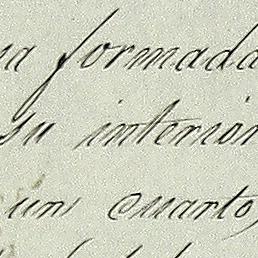 formada
su interior
un cuarto,